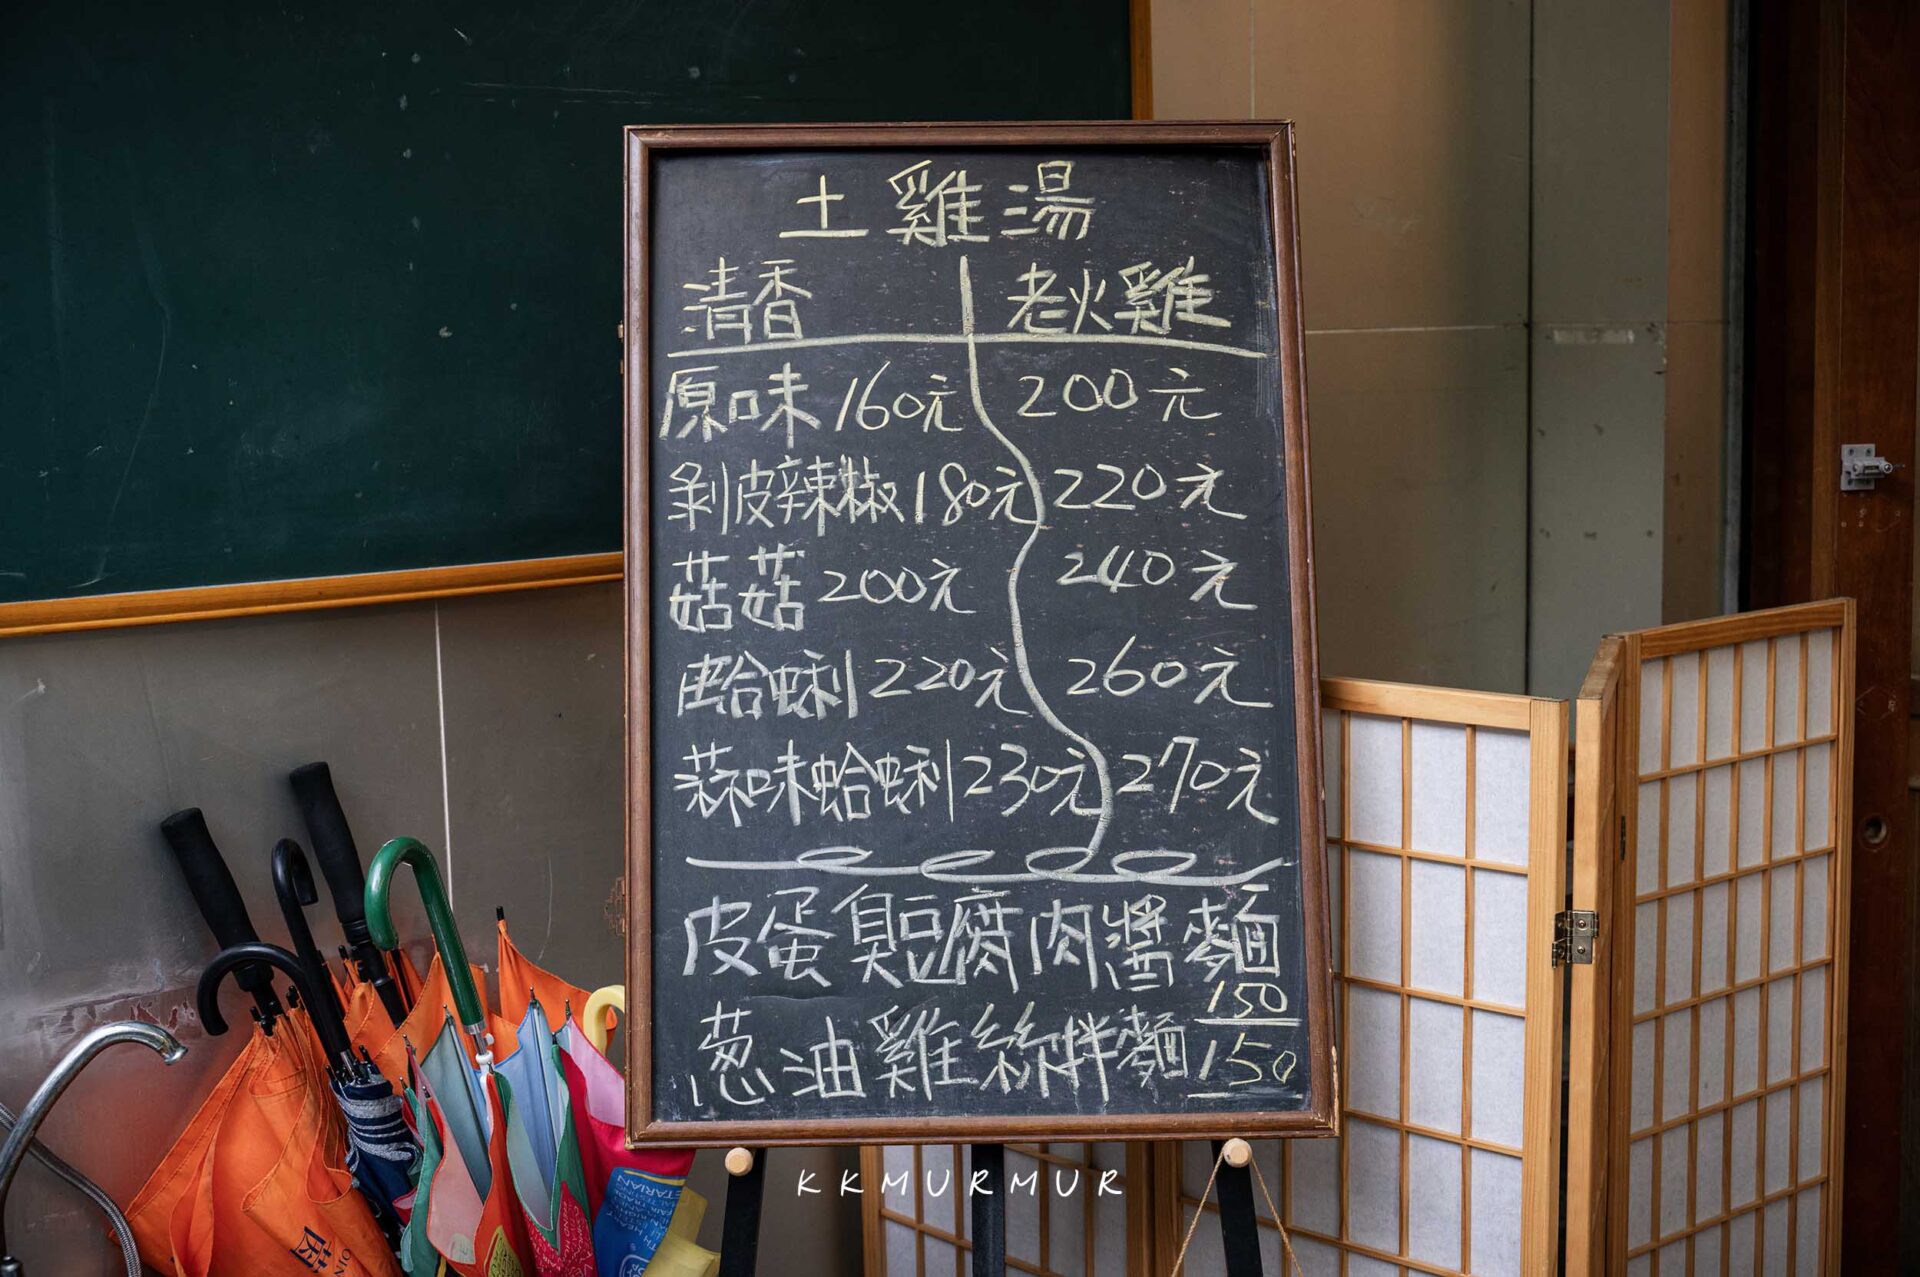 土雞湯
清香 老火雞
原味 160元 200元
剝皮辣椒 180元 220元
菇菇 200元 240元
蛤蜊 220元 260元
蒜味蛤蜊 230元 270元
皮蛋臭豆腐肉醬麵
150
葱油雞絲拌麵 150
KKMURMUR